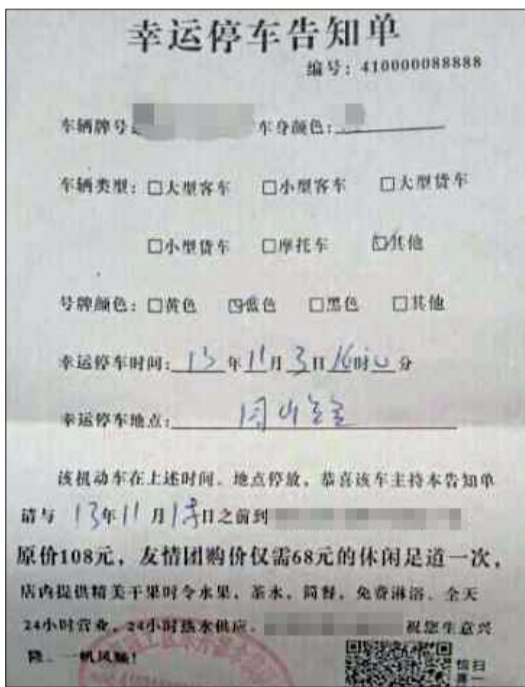 幸运停车告知单
编号：410000088888
车辆牌号： 车身颜色：
车辆类型：□大型客车 □小型客车 □大型货车
□小型货车 □摩托车 ☑其他
号牌颜色：□黄色 ☑蓝色 □黑色 □其他
幸运停车时间：13年11月3日16时 分
幸运停车地点：
该机动车在上述时间、地点停放，恭喜该车主持本告知单
请与 13年11月 日之前到
原价108元，友情团购价仅需68元的休闲足道一次，
店内提供精美干果时令水果、茶水、简餐、免费淋浴、全天
24小时营业，24小时热水供应。 祝您生意兴
隆、一帆风顺！